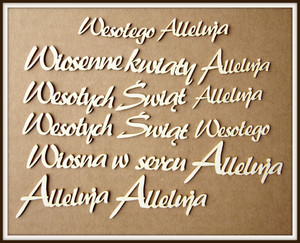 Wesołego Alleluja
Wiosenne kwiaty Alleluja
Wesołych Świąt Alleluja
Wesołych Świąt Wesołego
Wiosna w sercu Alleluja
Alleluja Alleluja